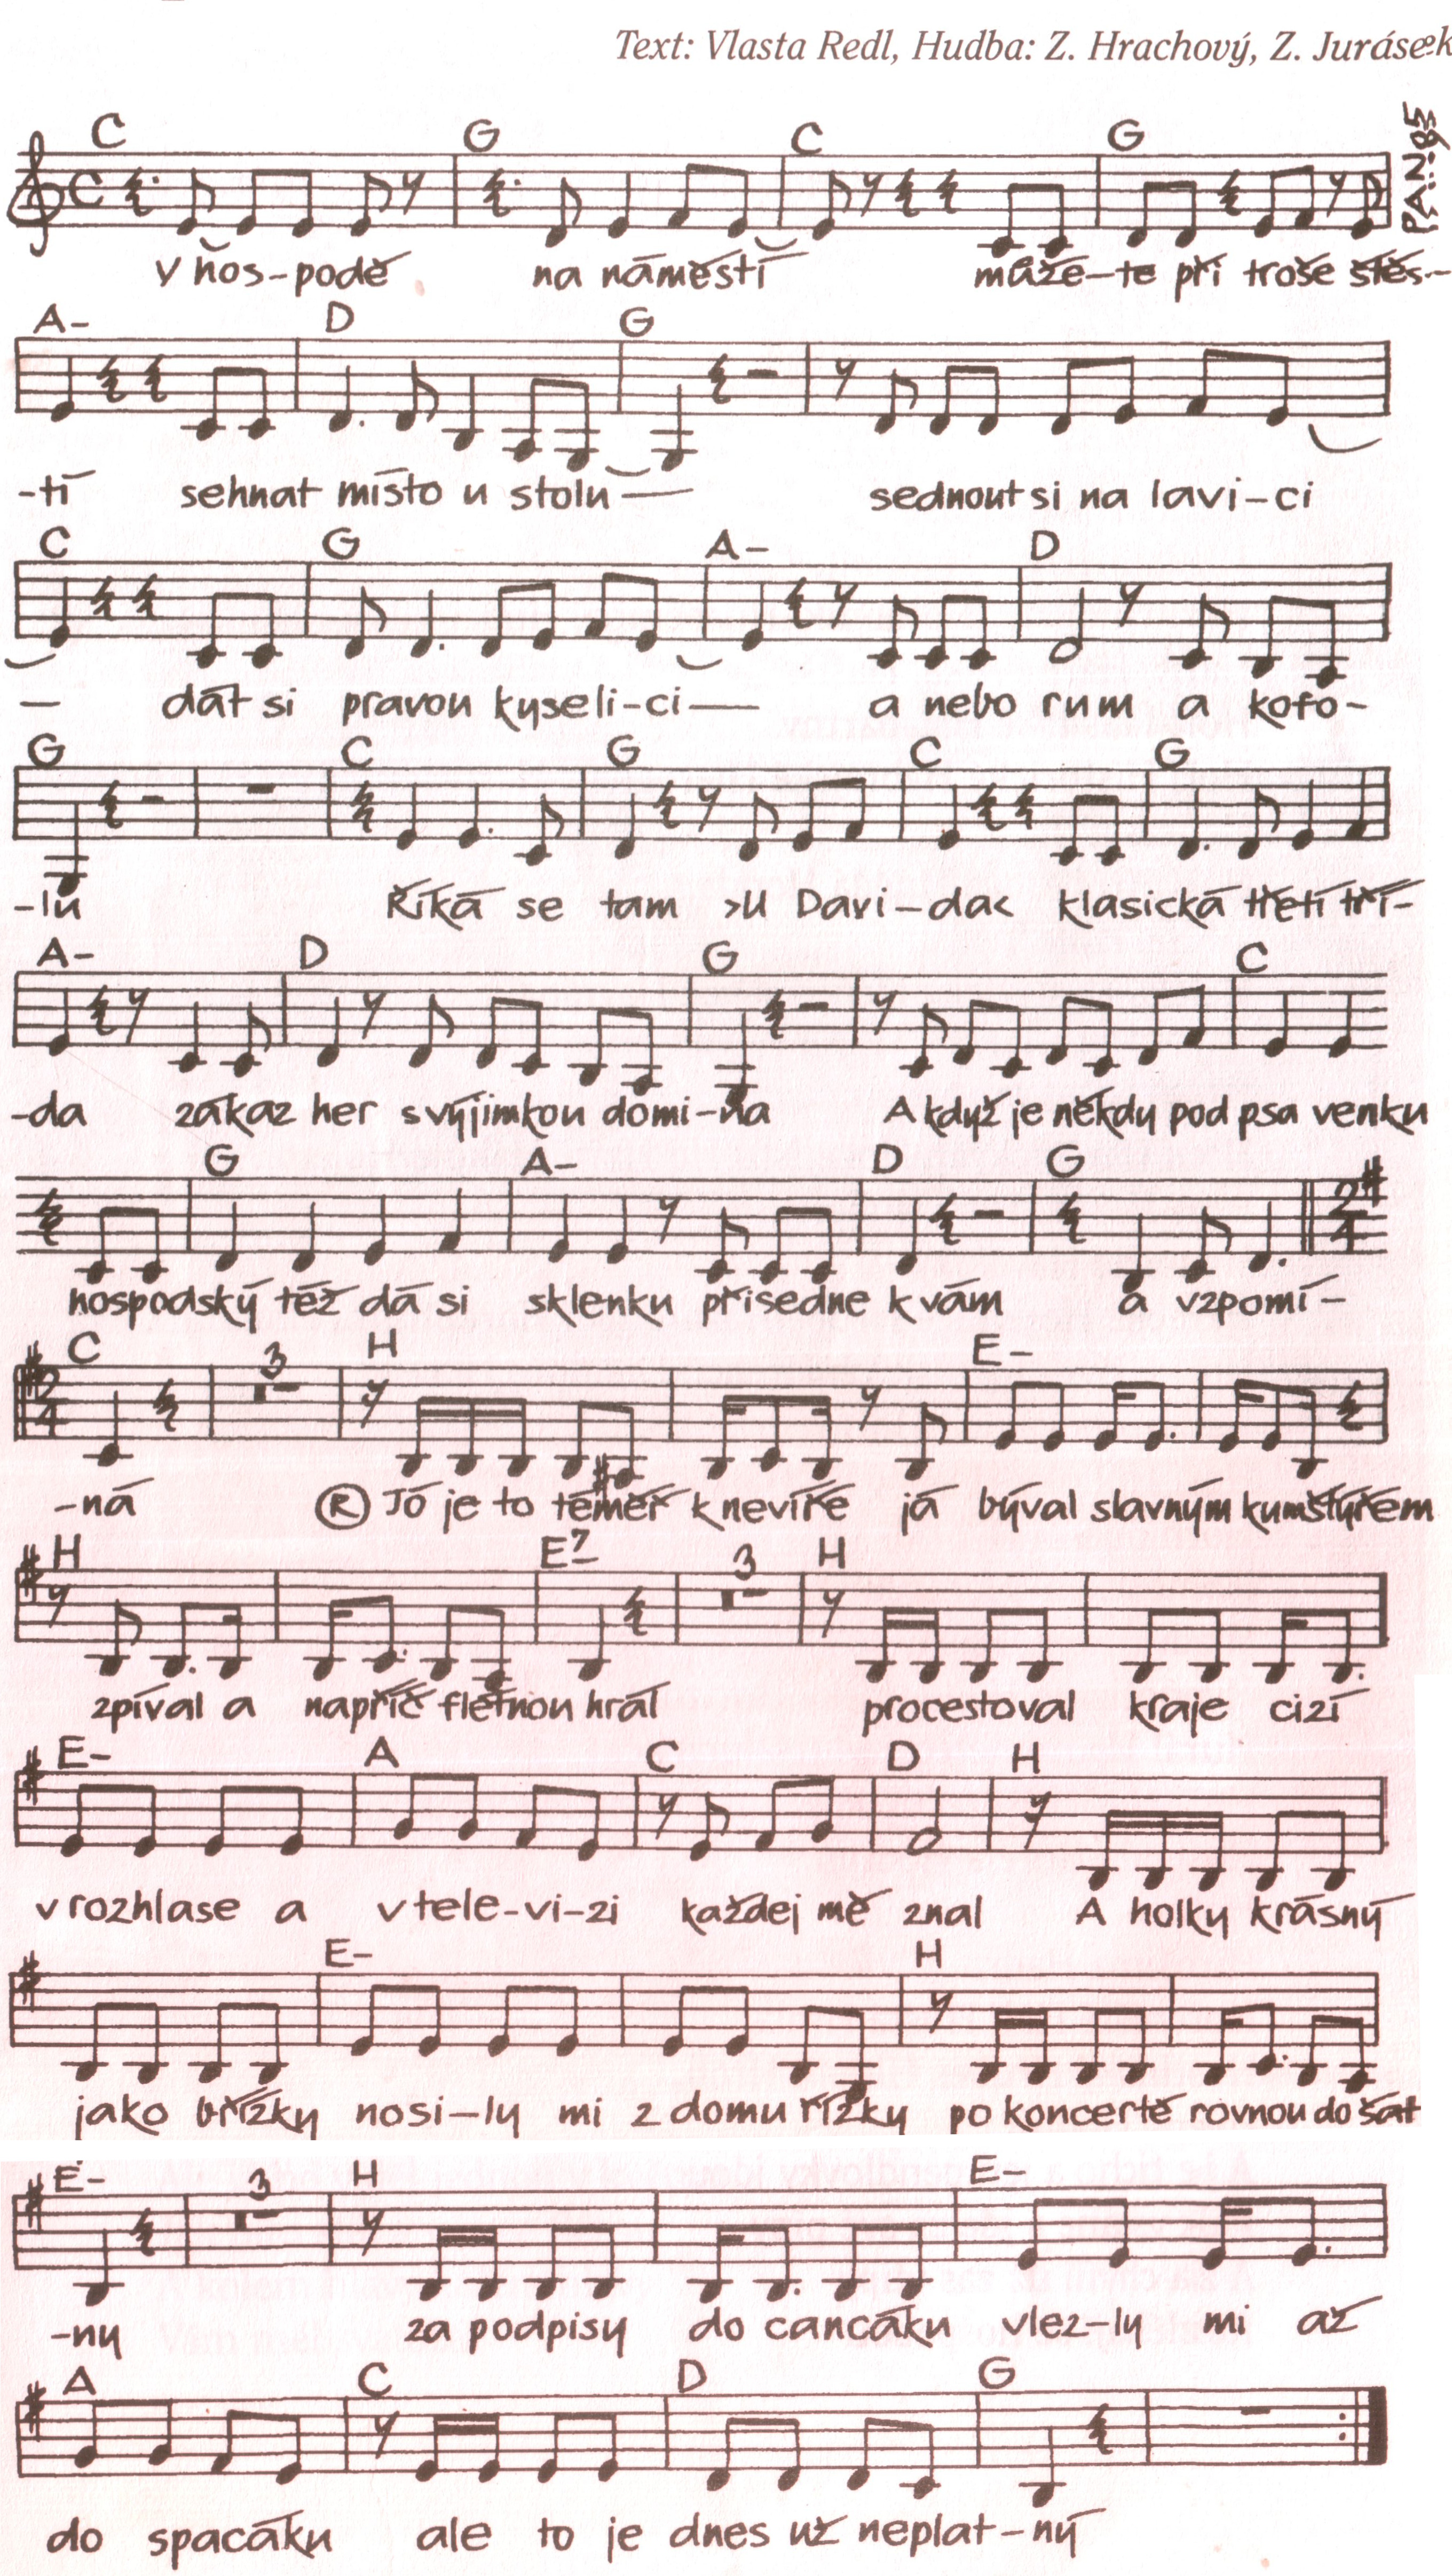 Text: Vlasta Redl, Hudba: Z. Hrachový, Z. Jurásek
C G C G
PAN 95
V hos-podě na náměstí můžě-te při troše štěs-
A- D G
-tí sehnat místo u stolu — sednout si na lavi-ci
C G A- D
— dát si pravou kyseli-ci — a nebo rum a kofo-
G C G C G
-lu Říká se tam >U Davi-da< klasická třetí tří-
A- D G C
-da zákaz her s výjimkou domi-na A když je někdy pod psa venku
G A- D G
hospodský též dá si sklenku přisedne k vám a vzpomí-
C 3 H E-
-ná Ⓡ Jó je to téměř k nevíře já býval slavným kumštýřem
H E7- 3 H
zpíval a napříč flétnou hrál procestoval kraje cizí
E- A C D H
v rozhlase a v tele-vi-zi každej mě znal A holky krásný
E- H
jako břízky nosi-ly mi z domu řízky po koncertě rovnou do šat
E- 3 H E-
-ny za podpisy do cancáku vlez-ly mi až
A C D G
do spacáku ale to je dnes už neplat-ný